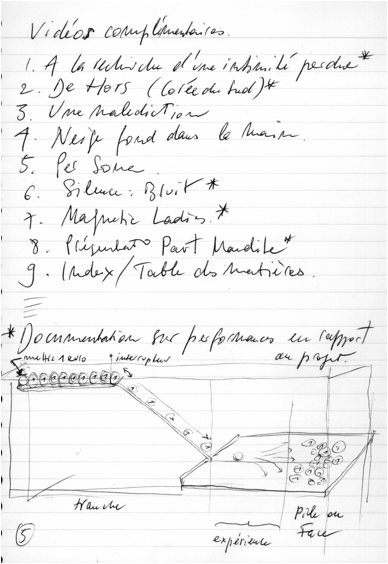 Vidéos complémentaires.
1. A la recherche d'une intimité perdue*
2. De Hors (Corée du Sud)*
3. Une malediction
4. Neige fond dans la main.
5. Per Sona
6. Silence : Bruit *
7. Magnetic Ladies. *
8. Présentato Part Maudite*
9. Index/Table des matières.
* Documentation sur performances en rapport
au projet
mettre 1 euro
interrupteur
tranche
expérience
Pile ou
Face
5